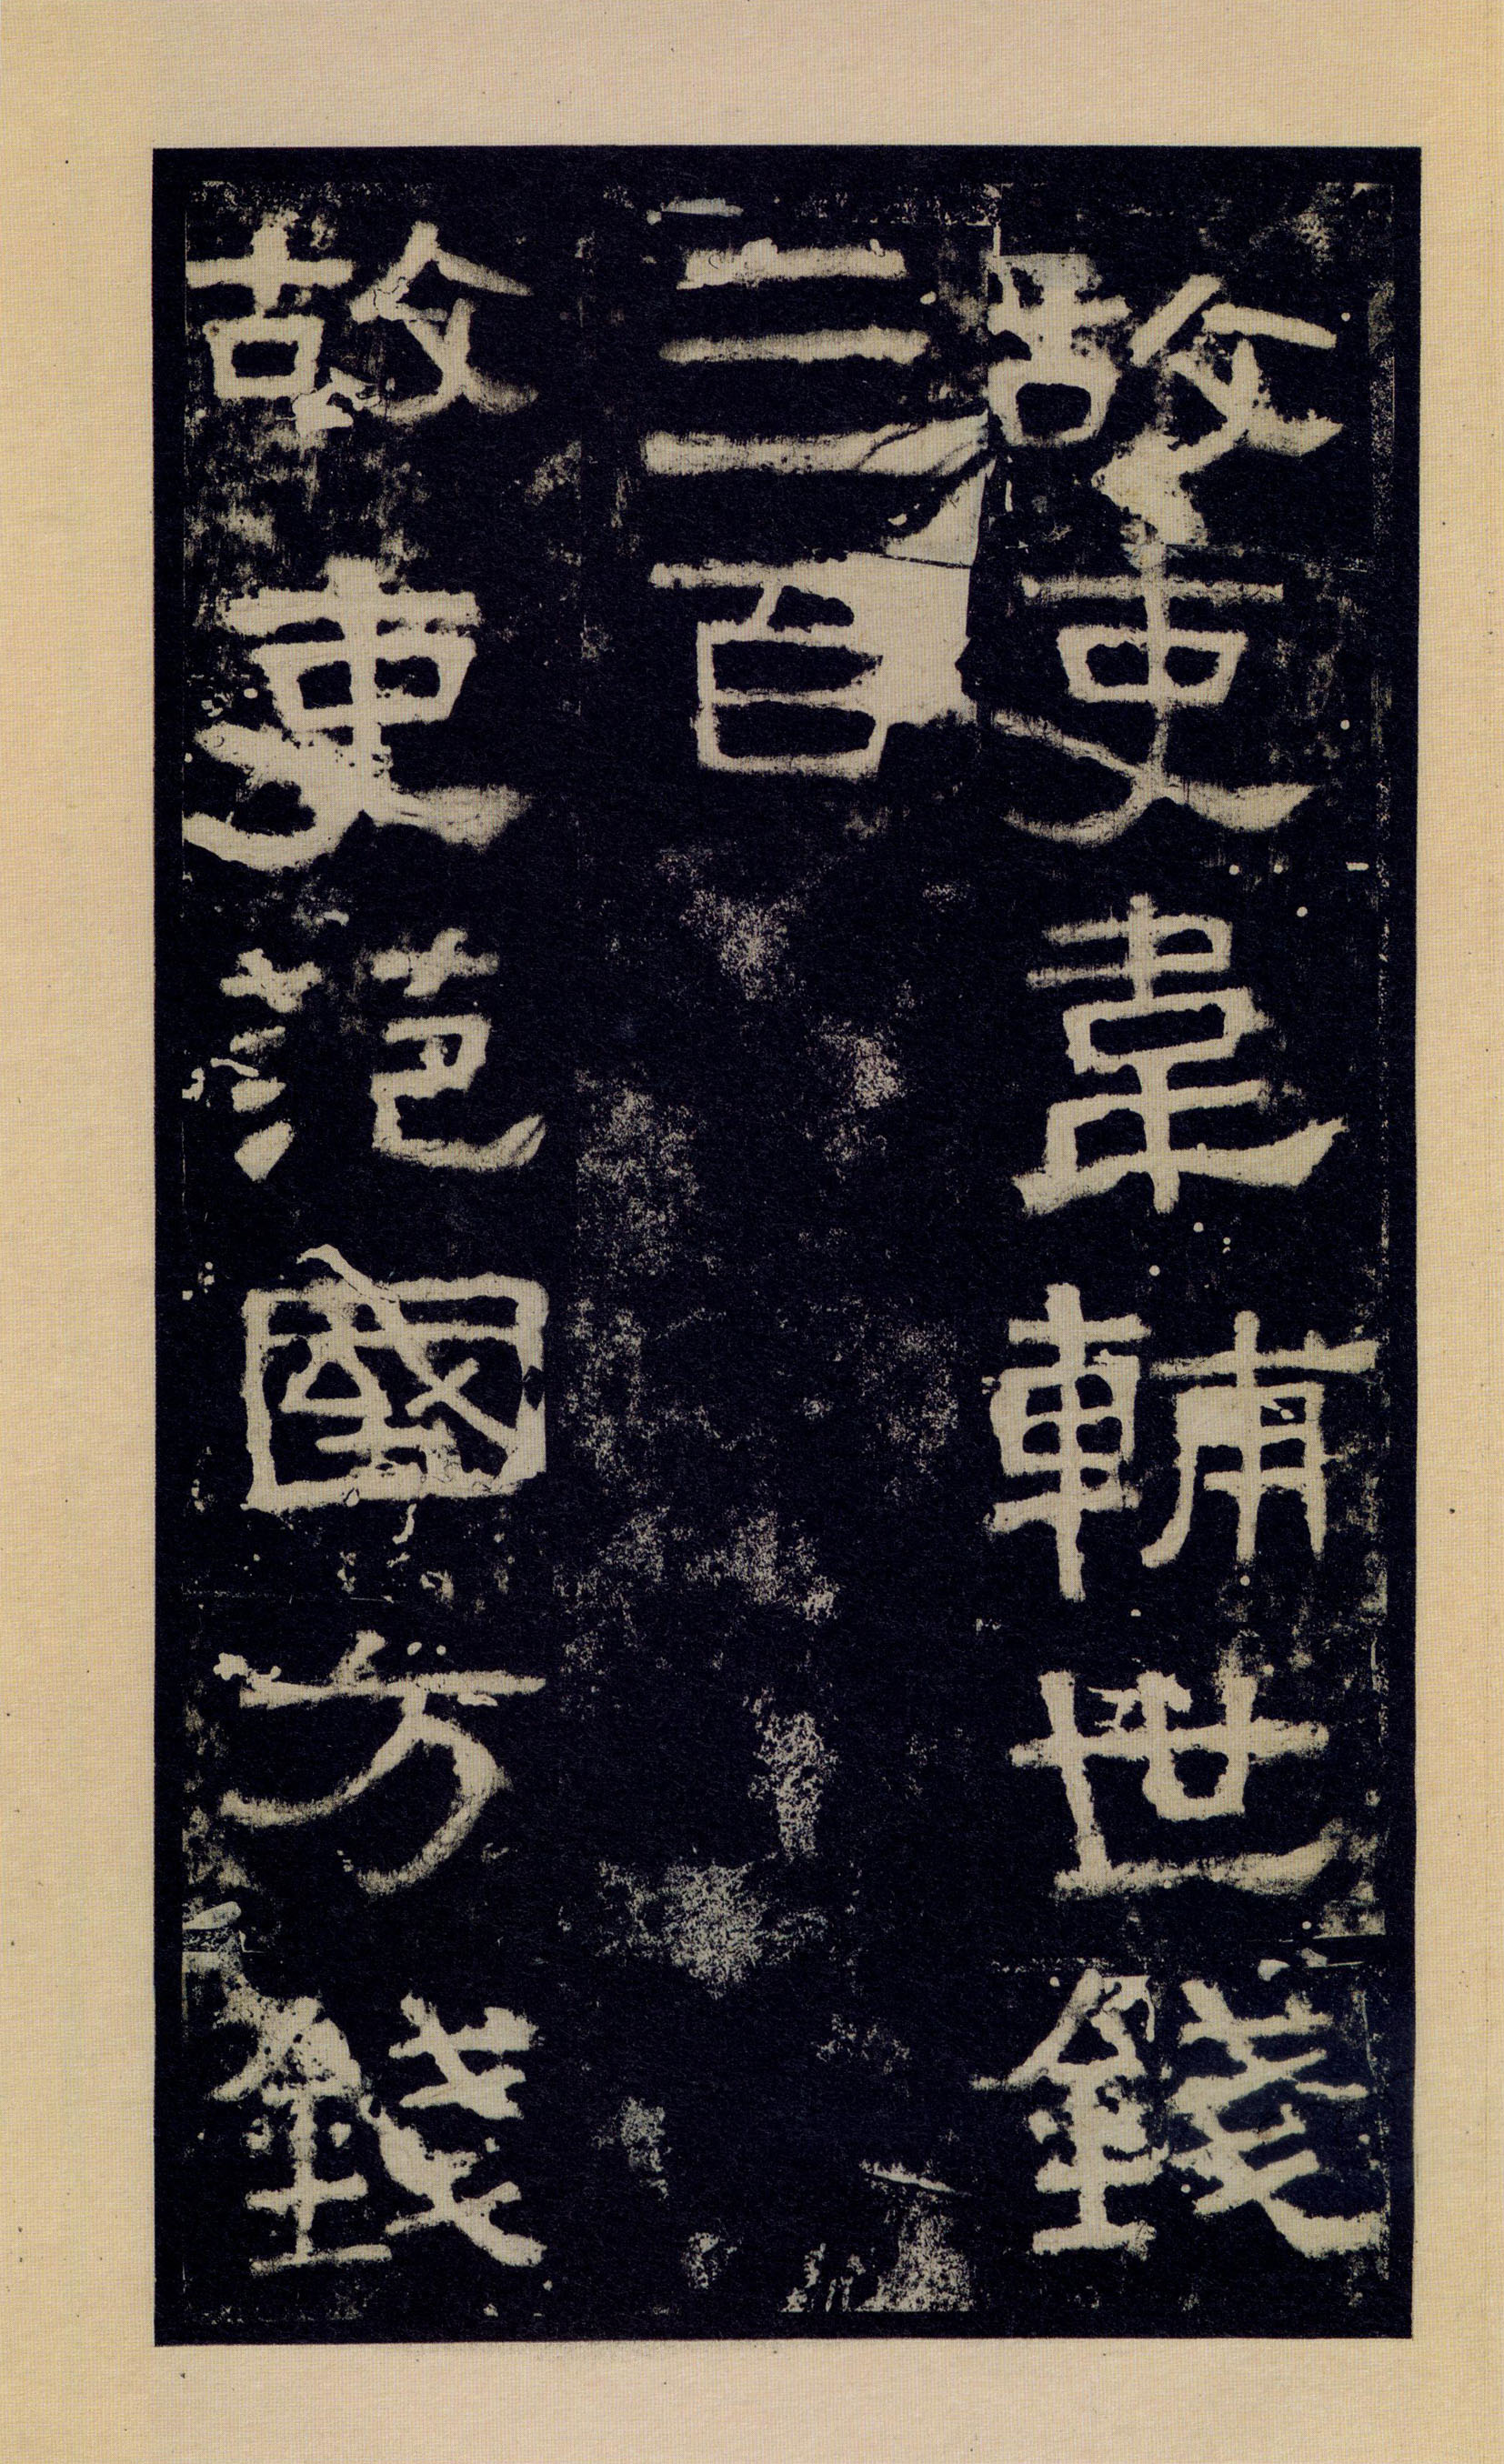 故吏韋輔世錢
三百
故吏范國方錢